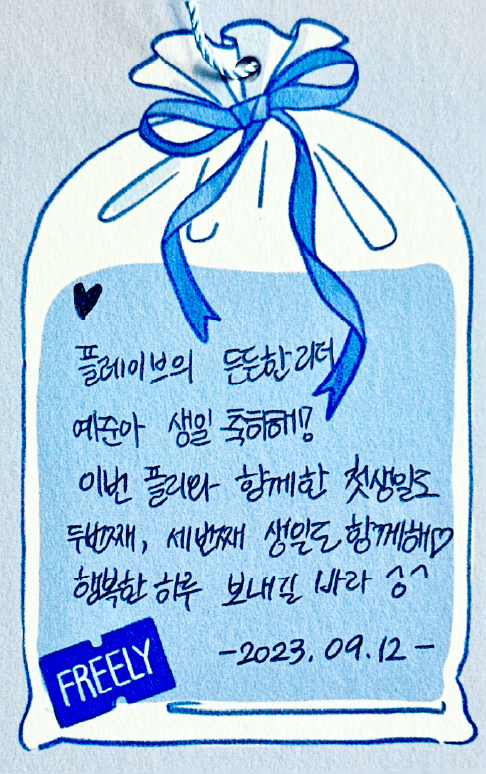 ♥
플레이브의 든든한 리더
예준아 생일 축하해!
이번 플리와 함께한 첫생일도
두번째, 세번째 생일도 함께해♡
행복한 하루 보내길 바라 ^^
-2023. 09. 12-
FREELY